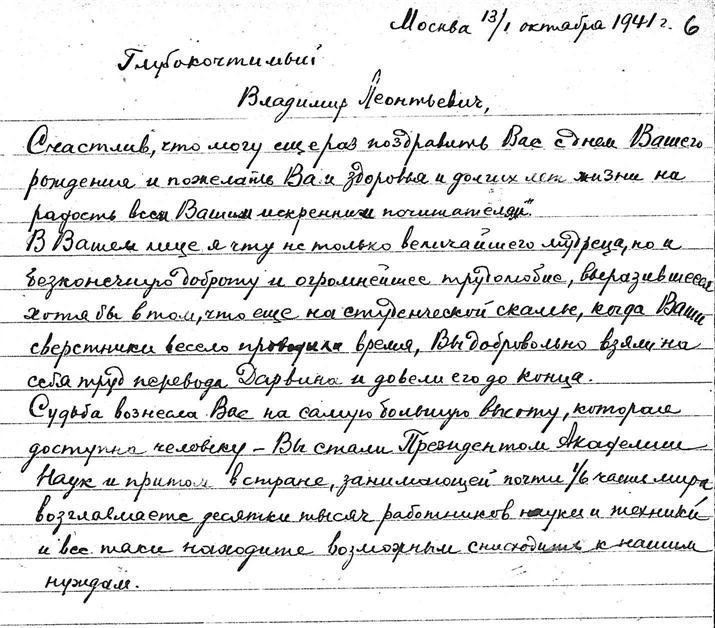 Москва 13/I октября 1941 г. 6
Глубокочтимый
Владимир Леонтьевич,
Счастлив, что могу еще раз поздравить Вас с днем Вашего
рождения и пожелать Вам здоровья и долгих лет жизни на
радость всем Вашим искренним почитателям.
В Вашем лице я чту не только величайшего мудреца, но и
безконечную доброту и огромнейшее трудолюбие, выразившееся
хотя бы в том, что еще на студенческой скамье, когда Ваши
сверстники весело проводили время, Вы добровольно взяли на
себя труд перевода Дарвина и довели его до конца.
Судьба вознесла Вас на самую большую высоту, которая
доступна человеку – Вы стали Президентом Академии
Наук и притом в стране, занимающей почти 1/6 части мира
возглавляете десятки тысяч работников науки и техники
и все таки находите возможным снисходить к нашим
нуждам.